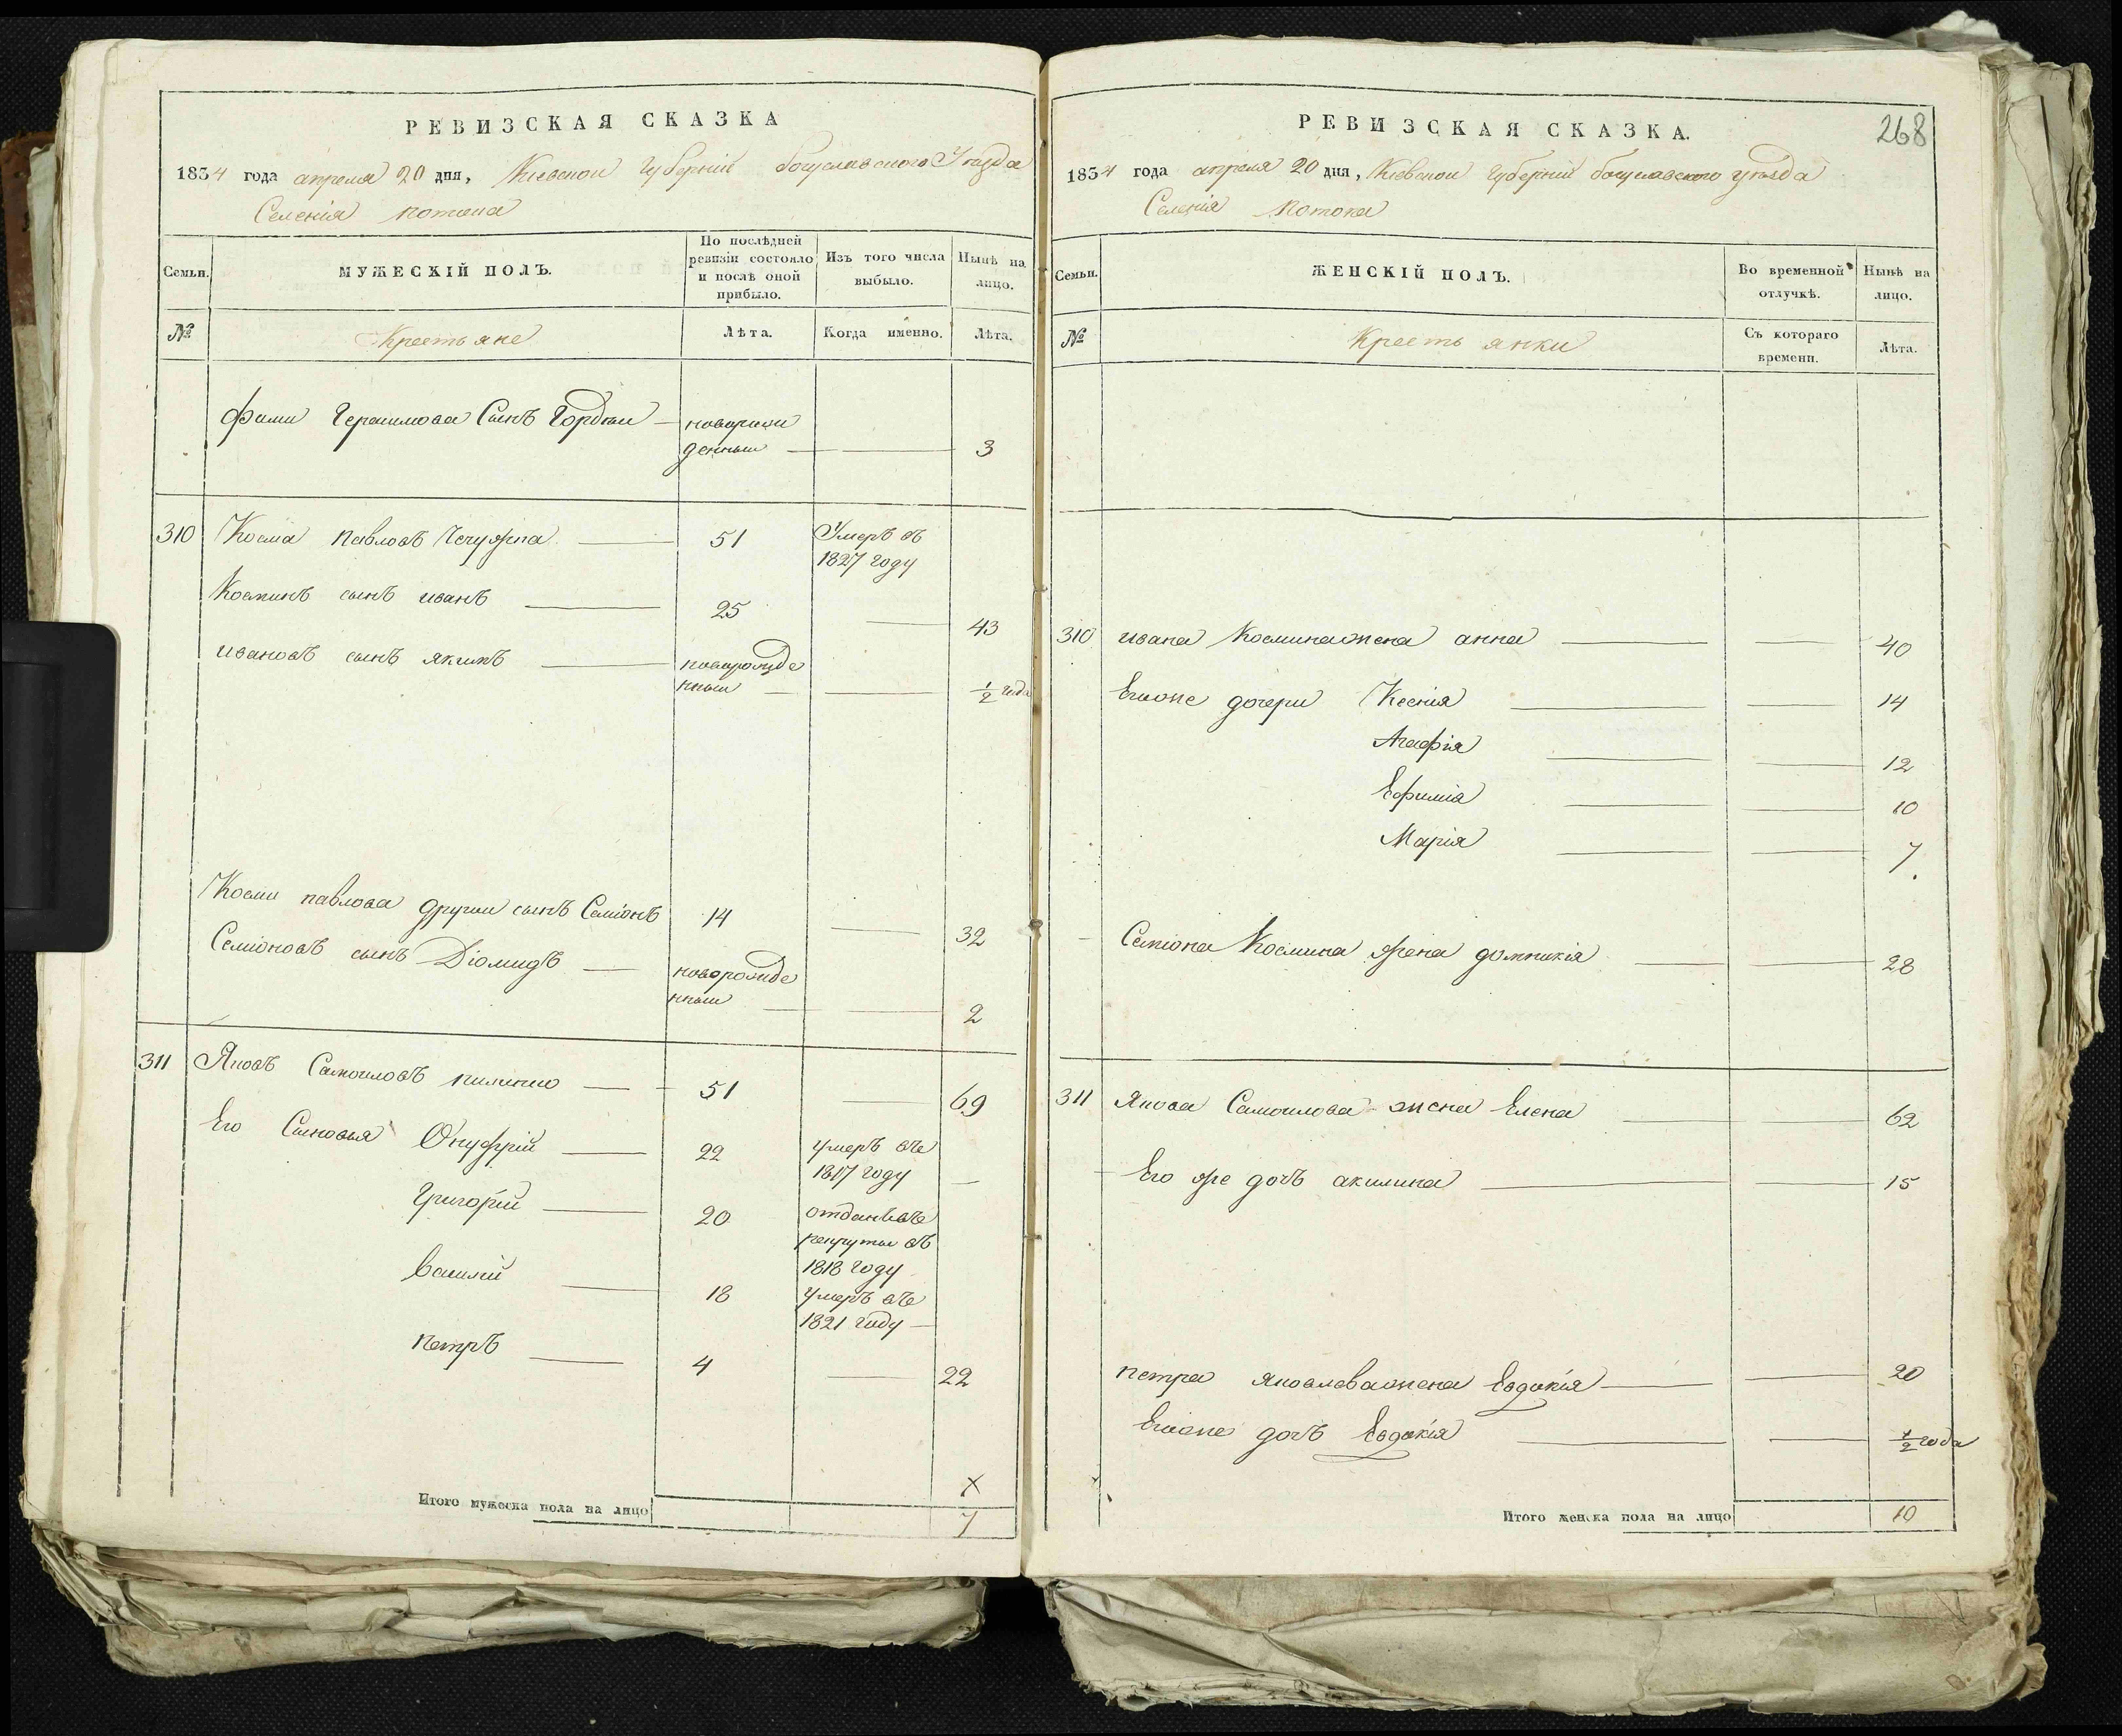 РЕВИЗСКАЯ СКАЗКА
1834 года апреля 20 дня, Киевской Губерніи богуславского Уезда
Селенія потока
Семьи.
МУЖЕСКІЙ ПОЛЪ.
По послѣдней ревизіи состояло и послѣ оной прибыло.
Изъ того числа выбыло.
Нынѣ на лицо.
№
Крестьяне
Лѣта.
Когда именно.
Лѣта.
Фоми Герасимова Сынъ Гордѣи
новорож
денныи
3
310 Косма павловъ 51 Умеръ въ
1827 году
Косминъ сынъ иванъ 25 43
ивановъ сынъ якимъ новорожде
нныи 1/2 года
Косми павлова другои сынъ Семіонъ 14 32
Семіоновъ сынъ Діомидъ новорожде
нныи 2
311 Яковъ Самоиловъ 51 69
Его Сыновья Онуфрій 22 умеръ въ
1817 году
Григорій 20 отданъ въ
рекруты въ
1818 году
Василій 18 умеръ въ
1821 году
петръ 4 22
х
Итого мужеска пола на лицо 7
РЕВИЗСКАЯ СКАЗКА.
268
1834 года апреля 20 дня, Киевской Губерніи богуславского уѣзда
Селенія потока
Семьи.
ЖЕНСКІЙ ПОЛЪ.
Во временной отлучкѣ.
Нынѣ на лицо.
№
Крестьянки
Съ котораго времени.
Лѣта.
310 ивана Космина жена анна 40
Егоже дочери Ксенія 14
Агафія 12
Ефимія 10
Марія 7
Семіона Космина жена домникія 28
311 Якова Самоилова жена Елена 62
Его же дочъ акилина 15
петра яковлева жена Евдокія 20
Егоже дочъ Евдокія 1/2 года
Итого женска пола на лицо 10